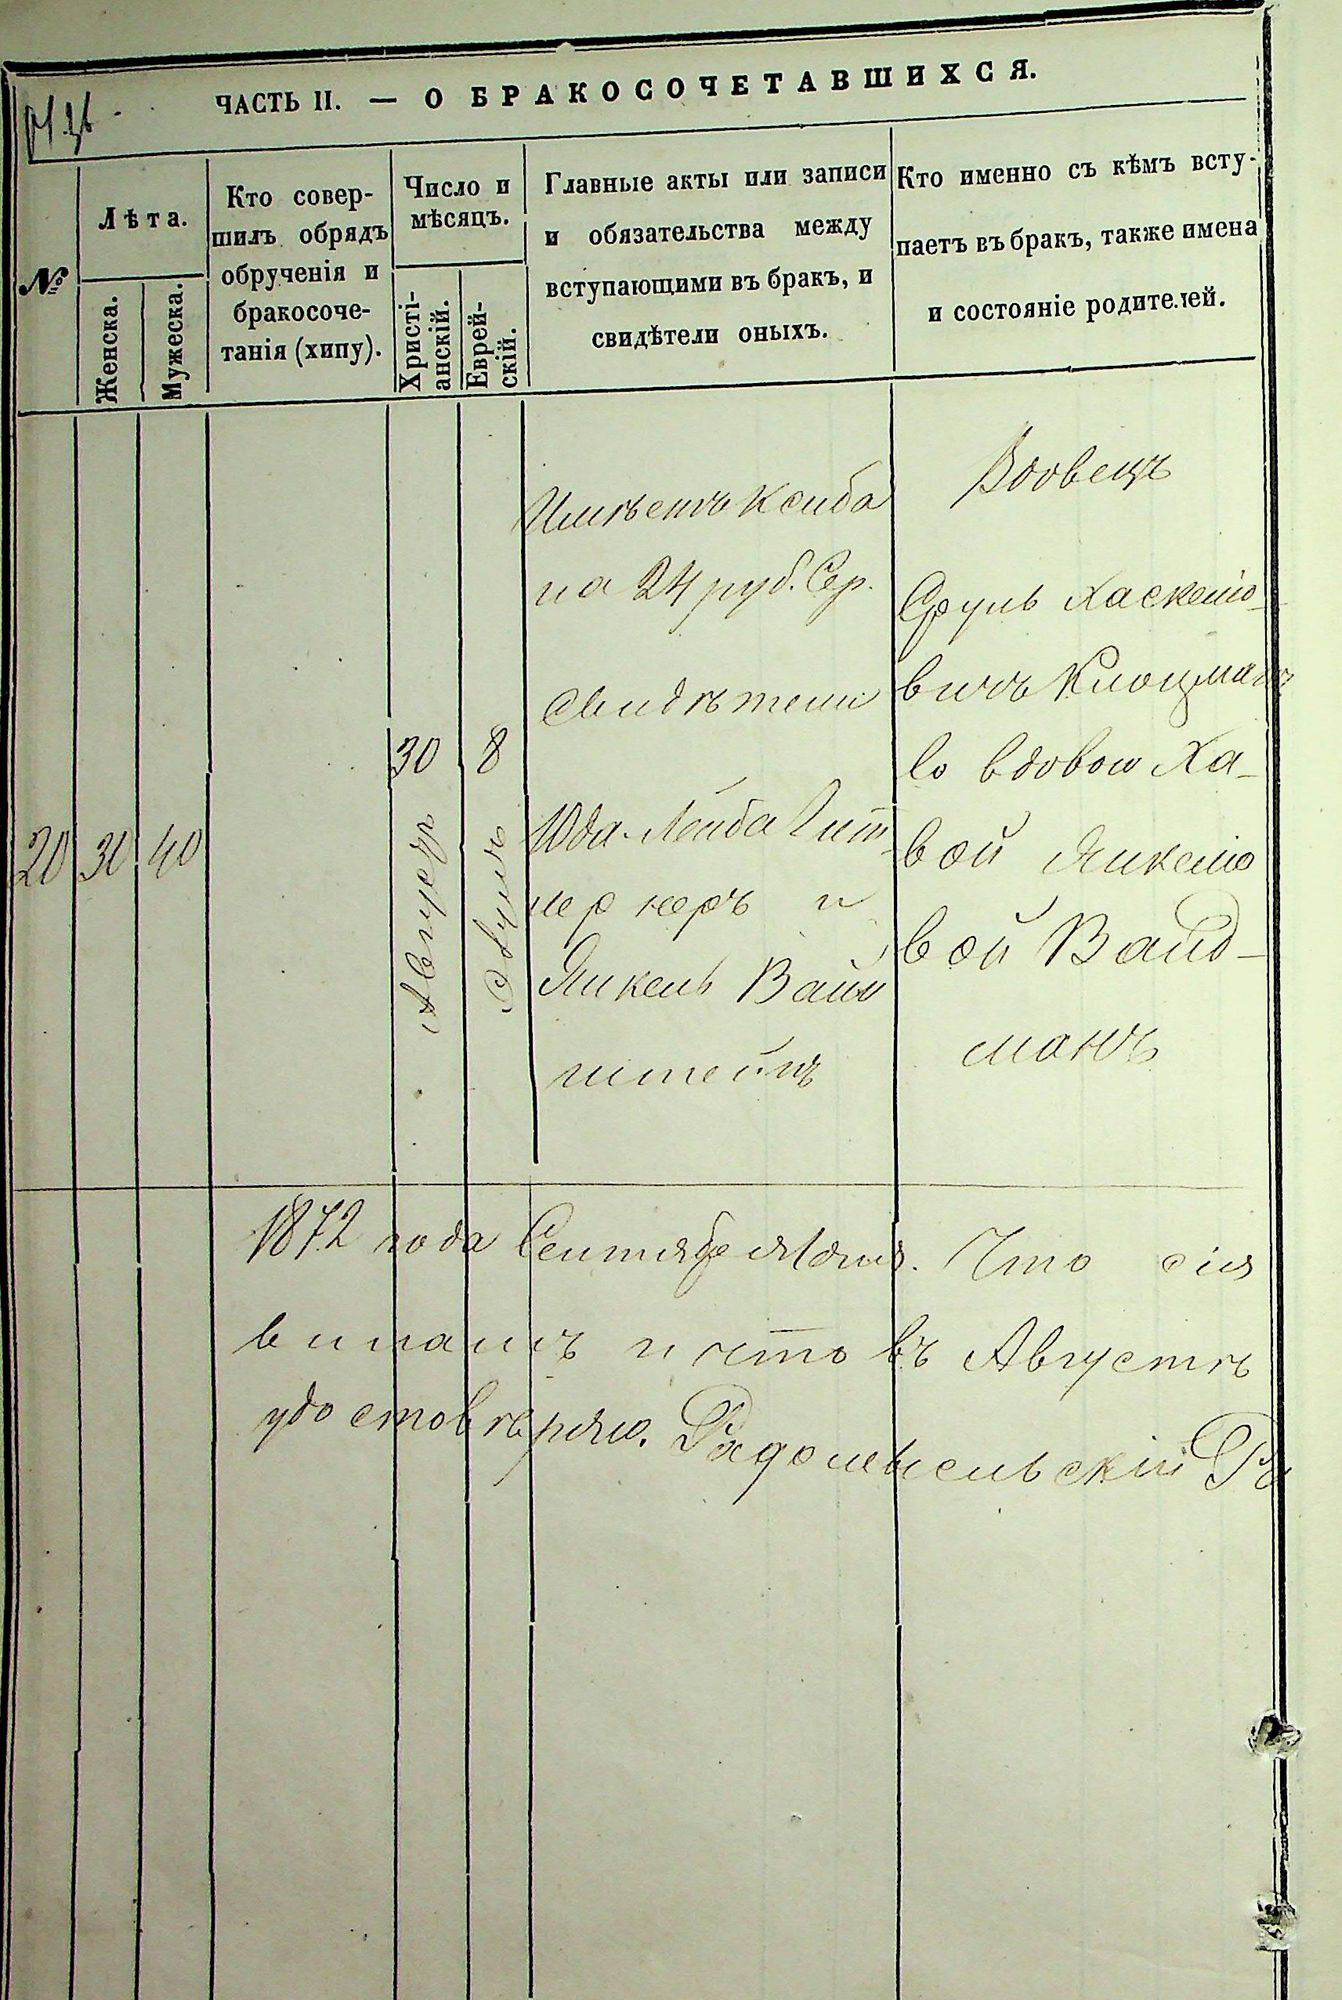 ЧАСТЬ II. — О БРАКОСОЧЕТАВШИХСЯ.
№
Лѣта.
Женска.
Мужеска.
Кто совер-
шилъ обрядъ
обрученія и
бракосоче-
танія (хипу).
Число и
мѣсяцъ.
Христі-
анскій.
Еврей-
скій.
Главные акты или записи
и обязательства между
вступающими въ бракъ, и
свидѣтели оныхъ.
Кто именно съ кѣмъ всту-
паетъ въ бракъ, также имена
и состояніе родителей.
20
30
40
30
Августа
8
Имѣетъ Ксиба
на 24 руб. Сер.
Свидѣтели
Юда-Лейба
и
Янкель Вайн
штейнъ
Вдовецъ
Сруль Хаскелю
вичъ Клоцманъ
со вдовою Ха-
вой Янкелю
вой Вайд-
манъ
1872 года Сентября 1 дня. Что сія
и что въ Августѣ
удостовѣряю. Радомысльскій Ра